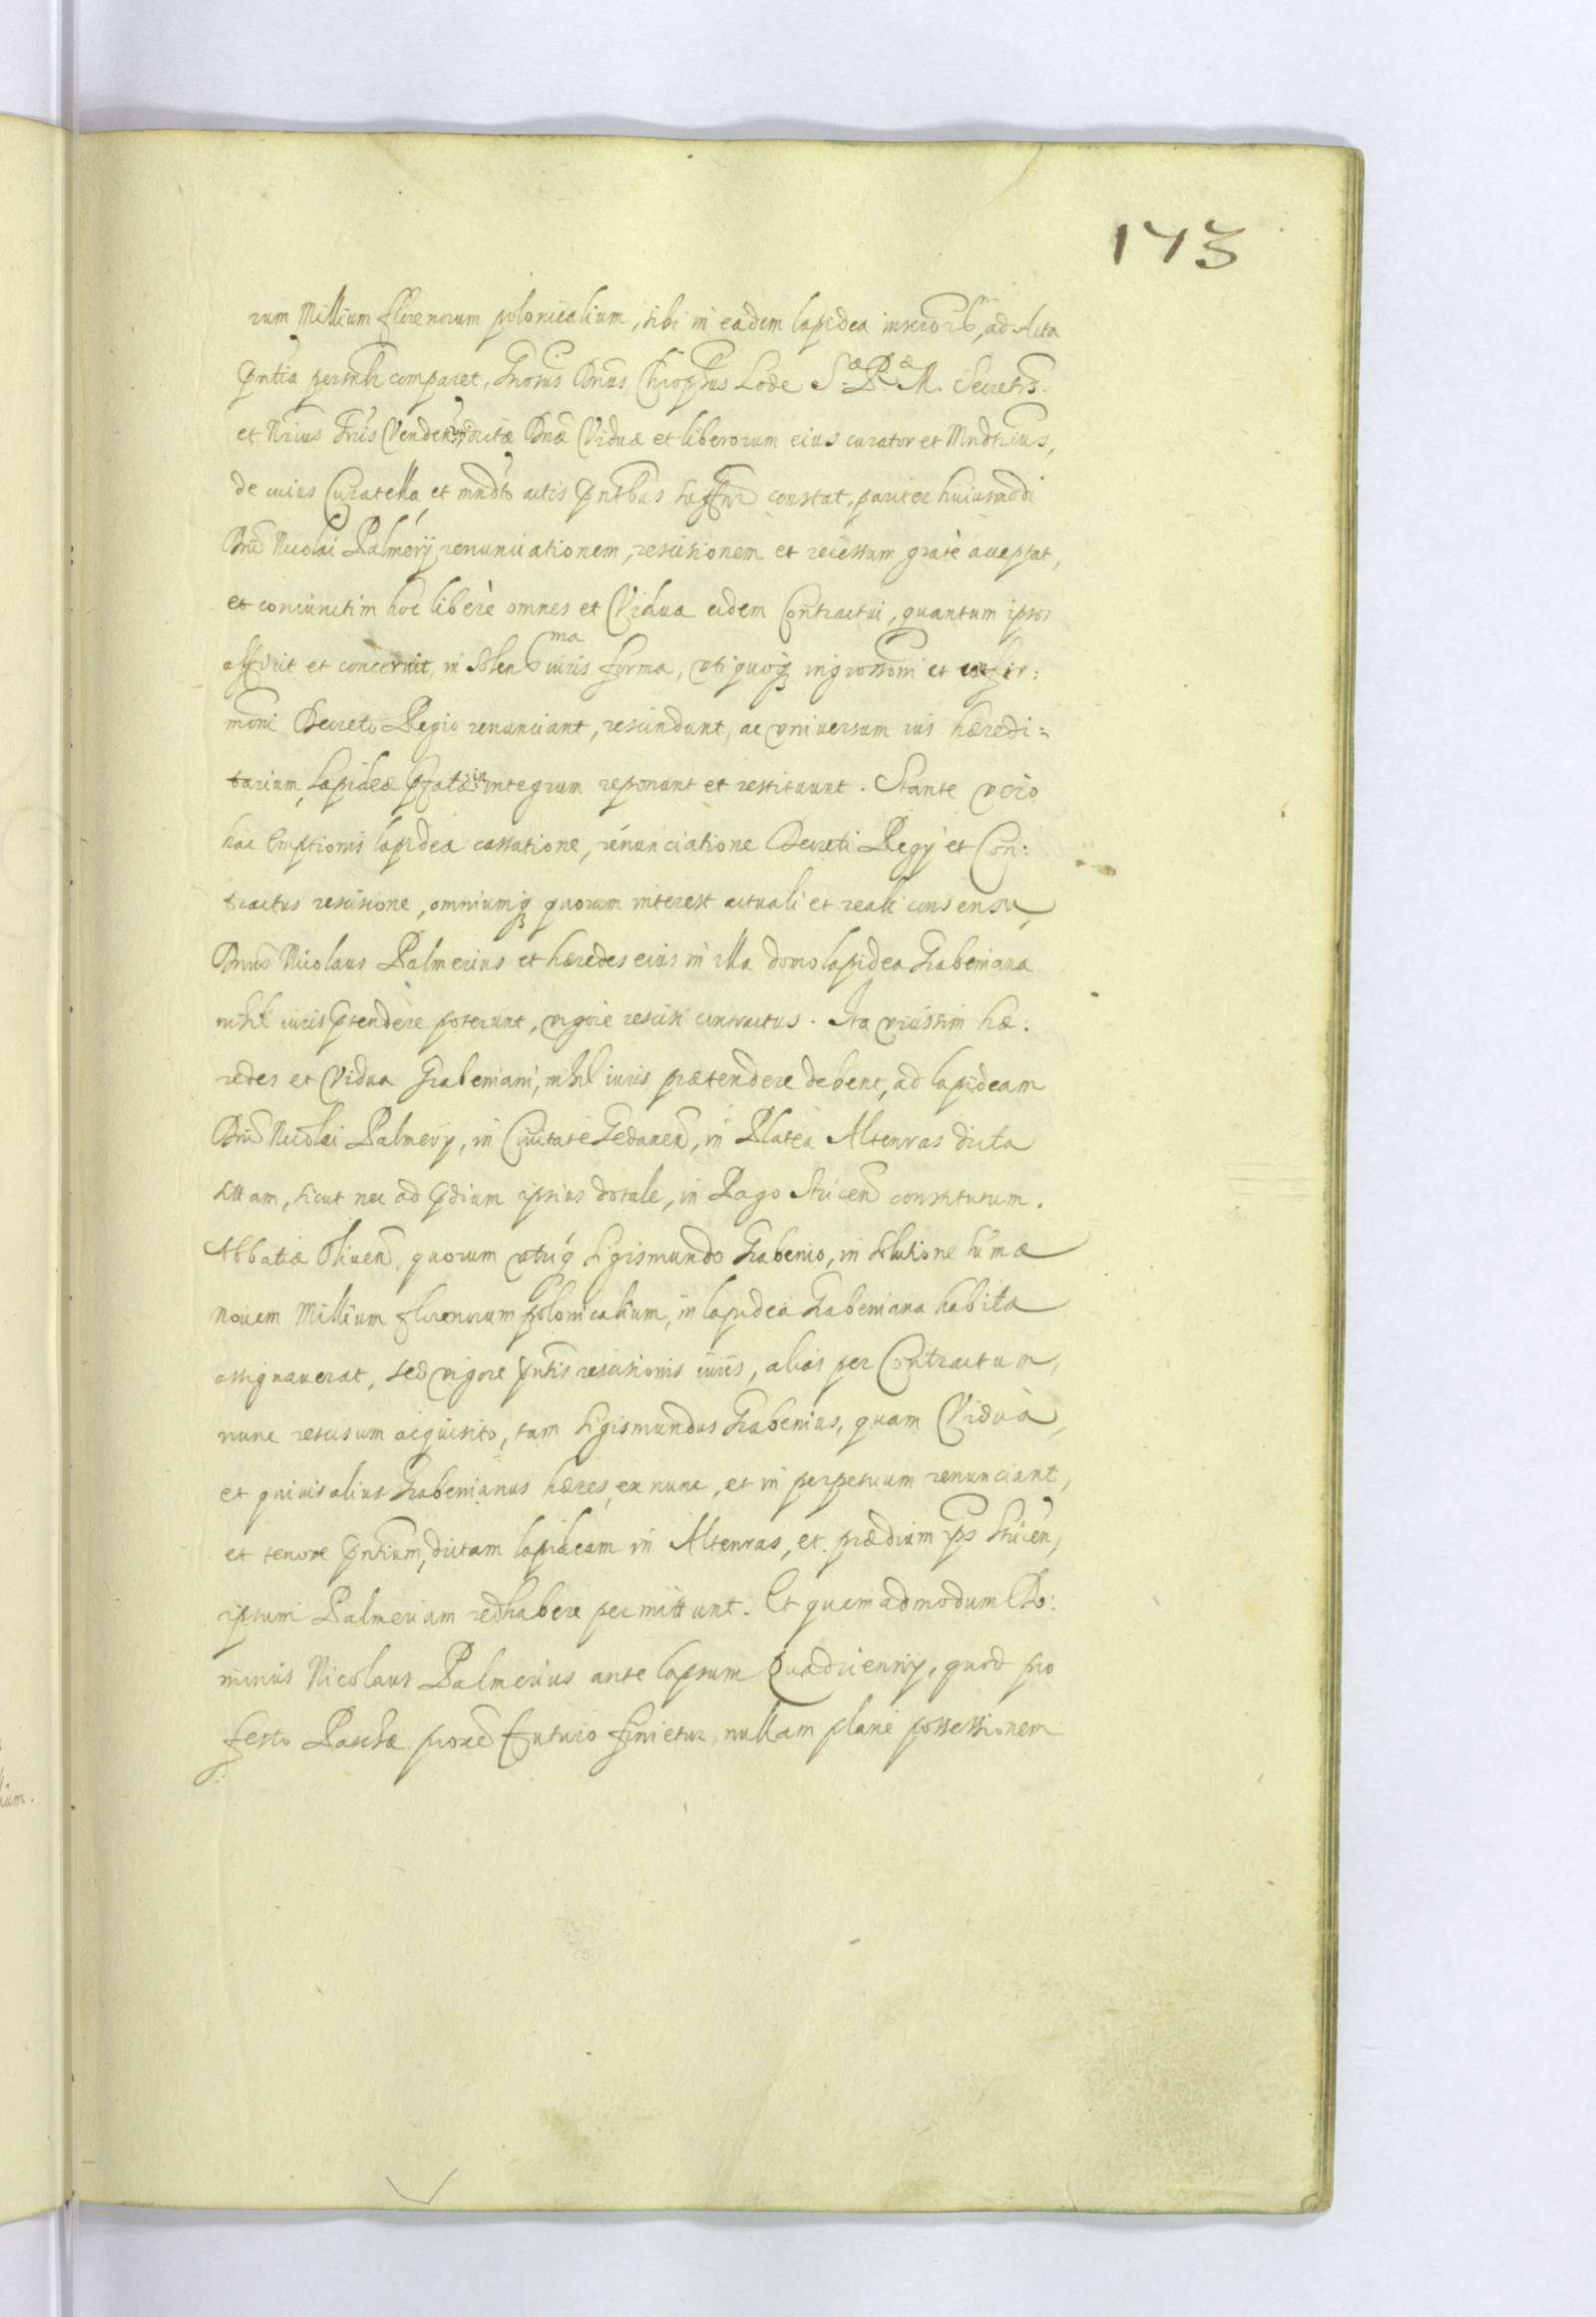 173
rum Millium florenorum polonicalium, sibi in eadem lapidea ad Acta
pntia persnlr comparet, Gnosus Dnus Chrophus Lode S. R. M. Secretrs.
et Nrius Tris Venden dictæ Dnæ Viduæ et liberorum eius curator et Mndtrius,
de cuius Curatella et mndto actis pntbus constat, pariter huiusmodi
Dni Nicolai Palmerij renunciationem, rescisionem et recessum gratè acceptat,
et coniunctim hoc liberè omnes et Vidua eidem Contractui, quantum ipsos
afficit et concernit, in Solenma iuris forma, uti quoq ingrossoni et confir:
moni Decreto Regio renunciant, rescindunt, ac universum ius hæredi=
tarium, lapideæ pfatæ in integrum reponunt et restituunt. Stante verò
hac Emptionis lapideæ cassatione, renunciatione Decreti Regij et Con:
tractus rescisione, omniumq quorum interest actuali et reali consensu,
Dnus Nicolaus Palmerius et hæredes eius in illa domo lapidea Grabeniana
nihil iuris ptendere poterunt, vigore rescisi contractus. Ita vicissim hæ:
redes et Vidua Grabeniani, nihil iuris prætendere debent, ad lapideam
Dni Nicolai Palmerij, in Ciuitate Gedanen, in Platea Altenras dicta
sitam, sicut nec ad pdium ipsius dotale, in Pago Stricen constitutum.
Abbatiæ Oliuen, quorum utrúq Sigismundo Grabenio, in solutione sumæ
nouem Millium florenorum polonicalium, in lapidea Grabeniana habita
assignauerat, sed vigore pntis rescisionis iuris, alias per Contractum,
nunc rescisum acquisito, tam Sigismundus Grabenius, quam Vidua,
et quiuis alius Grabenianus hæres, ex nunc, et in perpetuum renunciant,
et tenore pntium, dictam lapideam in Altenras, et prædium in Stricen,
ipsum Palmerium redhabere permittunt. Et quemadmodum Do:
minus Nicolaus Palmerius ante lapsum Quadriennij, quod pro
festo Paschæ proxe futuro finietur, nullam planè possessionem